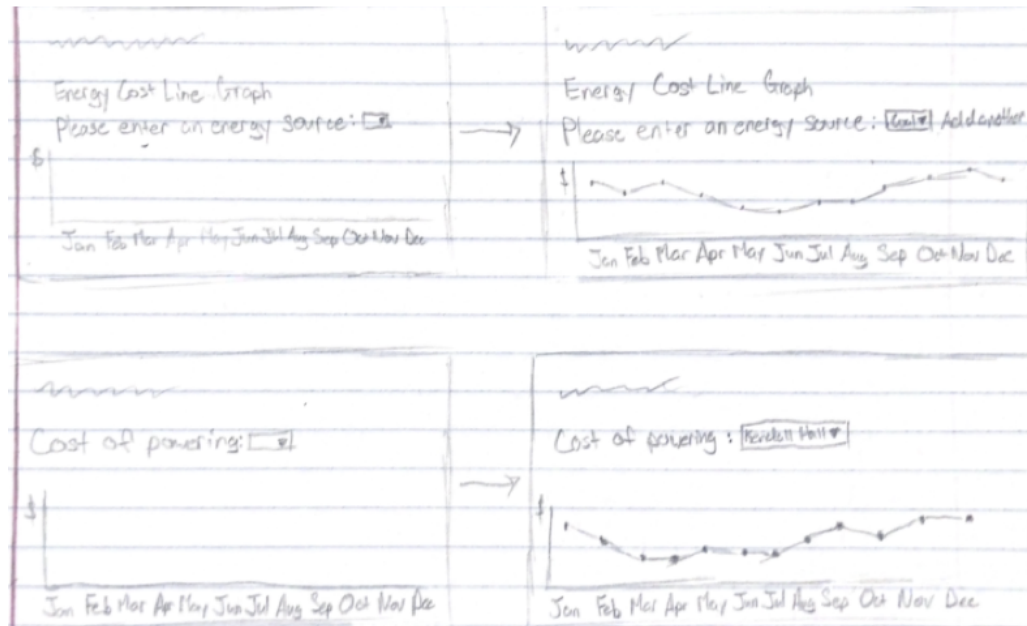 Energy Cost Line Graph
Please enter an energy source:
$
Jan Feb Mar Apr May Jun Jul Aug Sep Oct Nov Dec
Energy Cost Line Graph
Please enter an energy source: Coal Add another
$
Jan Feb Mar Apr May Jun Jul Aug Sep Oct Nov Dec
Cost of powering:
$
Jan Feb Mar Apr May Jun Jul Aug Sep Oct Nov Dec
Cost of powering: Hall
$
Jan Feb Mar Apr May Jun Jul Aug Sep Oct Nov Dec